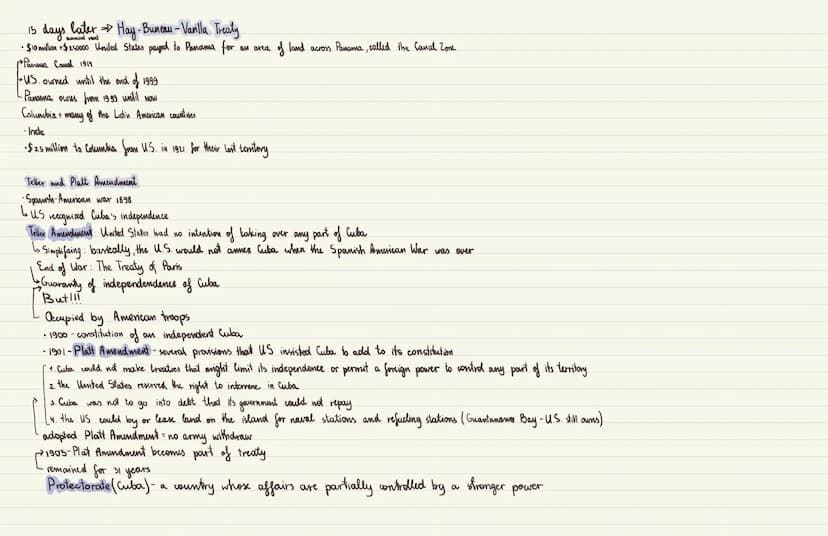 15 days later ⇒ Hay-Bunau-Varilla Treaty
annual rent
· $10 million + $250000 United States payed to Panama for an area of land across Panama, called the Canal Zone
Panama Canal 1914
US. owned until the end of 1999
Panama owns from 1999 until now
Columbia + many of the Latin American countries
·$25 million to Columbia from U.S. in 1921 for their lost territory
Teller and Platt Amendment
·Spanish-American war 1898
↳ US recognized Cuba's independence
Teller Amendment: United States had no intention of taking over any part of Cuba
↳ Simplifaing: basically, the U.S. would not annex Cuba when the Spanish American War was over
End of War: The Treaty of Paris
↳ Guaranty of independendence of Cuba
But!!!
Occupied by American troops
· 1900 - constitution of an independent Cuba
· 1901 - Platt Amendment - several provisions that US insisted Cuba to add to its constitution
1. Cuba could not make treaties that might limit its independence or permit a foreign power to control any part of its territory
2 the United States reserved the right to intervene in Cuba
3. Cuba was not to go into debt that its government could not repay
4 the US could by or lease land on the island for naval stations and refueling stations (Guantanamo Bay - U.S. still owns)
adopted Platt Amendment = no army withdraw
1903 - Plat Amendment becomes part of treaty
remained for 31 years
Protectorate (Cuba) - a country whose affairs are partially controlled by a stronger power